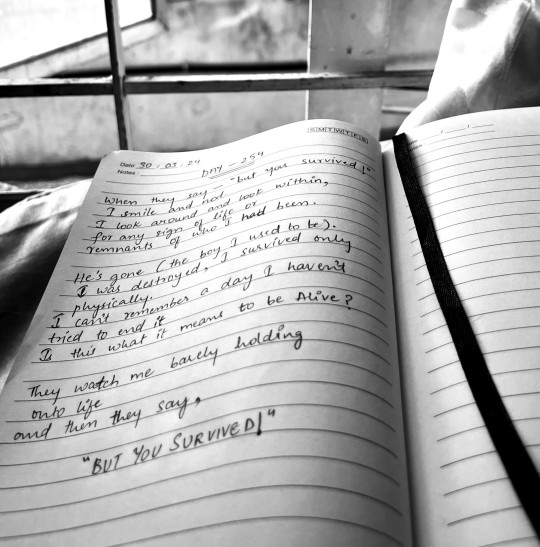 Date 30 / 03 / 24
Notes
SMTWTFS
DAY - 254
When they say - "but you survived!"
I smile and nod.
I look around and look within,
for any sign of life or
remnants of who I had been.
He's gone (the boy I used to be).
I was destroyed, I survived only
physically.
I can't remember a day I haven't
tried to end it
Is this what it means to be Alive?
They watch me barely holding
onto life
and then they say,
"BUT YOU SURVIVED!"